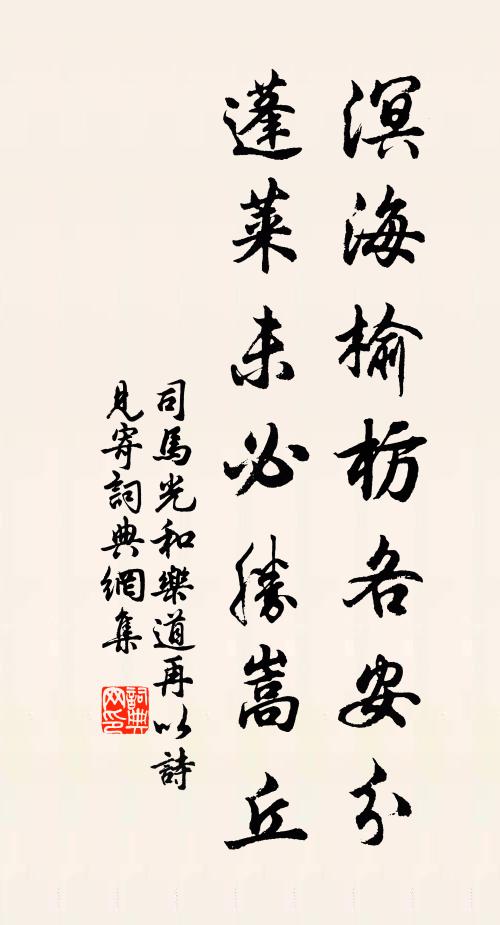 溟海榆枋各安分
蓬萊未必勝嵩丘
司馬光和樂道再以詩
見寄詞典網集
詞典
网印